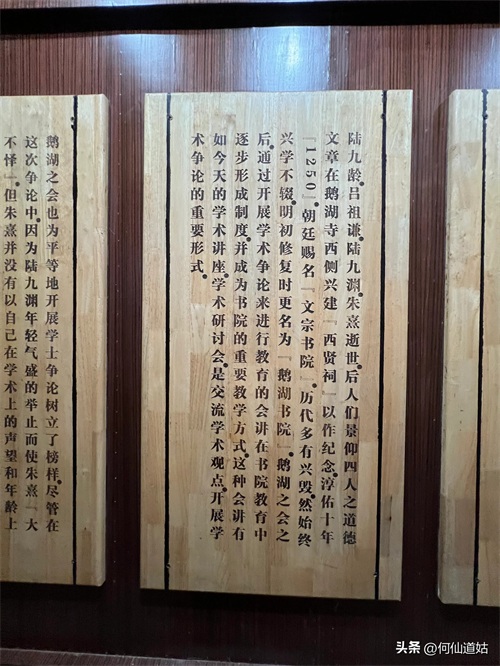 陆九龄、吕祖谦、陆九渊、朱熹逝世后人们景仰四人之道德
文章在鹅湖寺西侧兴建『西贤祠』以作纪念。淳佑十年
『1250』。朝廷赐名『文宗书院』。历代多有兴毁。然始终
兴学不辍。明初修复时更名为『鹅湖书院』。鹅湖之会之
后。通过开展学术争论来进行教育的会讲在书院教育中
逐步形成制度。并成为书院的重要教学方式。这种会讲有
如今天的学术讲座。学术研讨会。是交流学术观点。开展学
术争论的重要形式。
鹅湖之会也为平等地开展学士争论树立了榜样。尽管在
这次争论中。因为陆九渊年轻气盛的举止而使朱熹『大
不怿』。但朱熹并没有以自己在学术上的声望和年龄上
头条 @何仙道姑